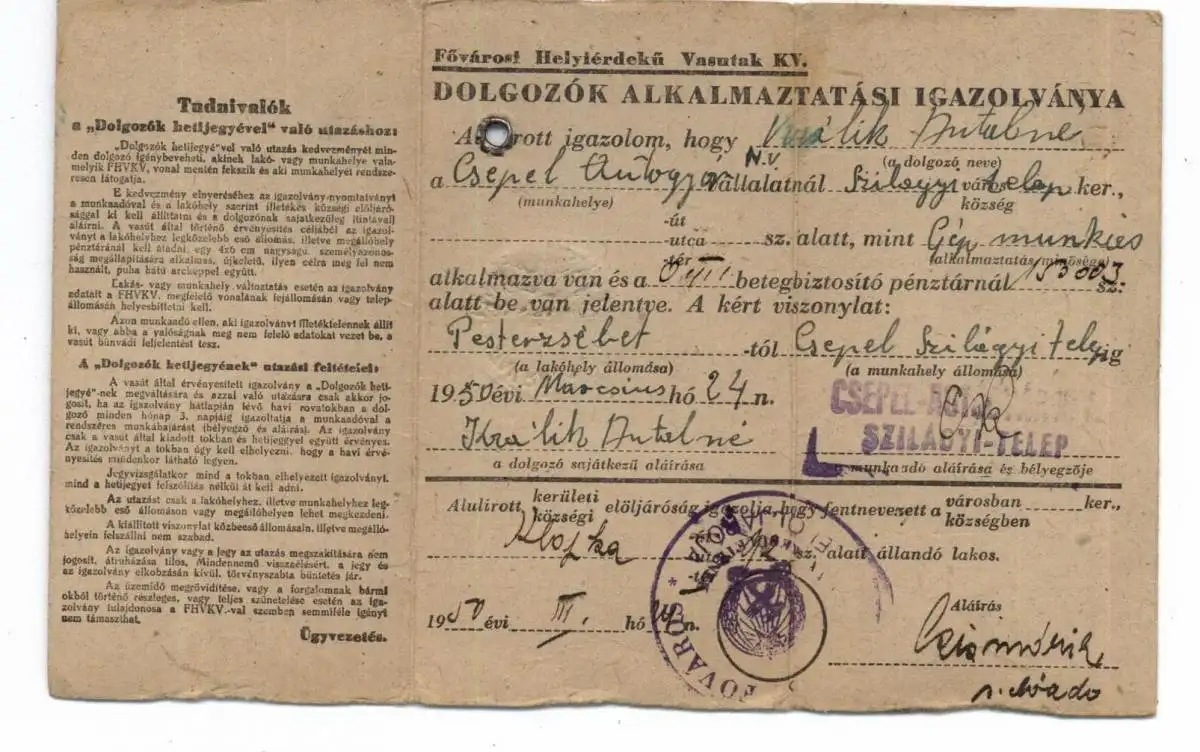 Tudnivalók
a „Dolgozók hetijegyével" való utazáshoz:
„Dolgozók hetijegyé"vel való utazás kedvezményét min-
den dolgozó igénybeveheti, akinek lakó- vagy munkahelye vala-
melyik FHVKV. vonal mentén fekszik és aki munkahelyét rendsze-
resen látogatja.
E kedvezmény elnyeréséhez az igazolvány-nyomtatványt
a munkaadóval és a lakóhely szerint illetékes községi elöljáró-
sággal ki kell állíttatni és a dolgozónak sajátkezűleg (tintával)
aláírni. A vasút által történő érvényesítés céljából az igazol-
ványt a lakóhelyhez legközelebb eső állomás, illetve megállóhely
pénztáránál kell átadni, egy 4x6 cm nagyságú, személyazonos-
ság megállapítására alkalmas, újkeletű, ilyen célra még fel nem
használt, puha hátú arcképpel együtt.
Lakás- vagy munkahely változtatás esetén az igazolvány
adatait a FHVKV. megfelelő vonalának fejállomásán vagy telep-
állomásán helyesbíttetni kell.
Azon munkaadó ellen, aki igazolványt illetéktelennek állít
ki, vagy abba a valóságnak meg nem felelő adatokat vezet be, a
vasút bűnvádi feljelentést tesz.
A „Dolgozók hetijegyének" utazási feltételei:
A vasút által érvényesített igazolvány a „Dolgozók heti-
jegyé"-nek megváltására és azzal való utazásra csak akkor jo-
gosít, ha az igazolvány hátlapján lévő havi rovatokban a dol-
gozó minden hónap 3. napjáig igazoltatja a munkaadóval a
rendszeres munkabajárást (bélyegző és aláírás). Az igazolvány
csak a vasút által kiadott tokban és hetijeggyel együtt érvényes.
Az igazolványt a tokban úgy kell elhelyezni, hogy a havi érvé-
nyesítés mindenkor látható legyen.
Jegyvizsgálatkor mind a tokban elhelyezett igazolványt,
mind a hetijegyet felszólítás nélkül át kell adni.
Az utazást csak a lakóhelyhez, illetve munkahelyhez leg-
közelebb eső állomáson vagy megállóhelyen lehet megkezdeni.
A kiállított viszonylat közbeeső állomásain, illetve megálló-
helyein felszállni nem szabad.
Az igazolvány vagy a jegy az utazás megszakítására nem
jogosít, átruházása tilos. Mindennemű visszaélésért, a jegy és
az igazolvány elkobzásán kívül, törvényszabta büntetés jár.
Az üzemidő megrövidítése, vagy a forgalomnak bármi
okból történő részleges, vagy teljes szünetelése esetén az iga-
zolvány tulajdonosa a FHVKV.-val szemben semmiféle igényt
nem támaszthat.
Ügyvezetés.
Fővárosi Helyiérdekű Vasutak KV.
DOLGOZÓK ALKALMAZTATÁSI IGAZOLVÁNYA
Alulírott igazolom, hogy Králik Antalné
(a dolgozó neve)
a Csepel Autógyár N.V. vállalatnál Szilágyi telep város ker.,
(munkahelye) község
-út
-utca sz. alatt, mint Gép munkás
-tér (alkalmaztatás minősége)
alkalmazva van és a betegbiztosító pénztárnál 153003 sz.
alatt be van jelentve. A kért viszonylat:
Pesterzsébet -tól Csepel Szilágyi telepig
(a lakóhely állomása) (a munkahely állomása)
1950 évi Március hó 24 n.
CSEPEL
SZILÁGYI-TELEP
Králik Antalné
a dolgozó sajátkezű aláírása a munkaadó aláírása és bélyegzője
Alulírott kerületi községi elöljáróság igazolja, hogy fentnevezett a városban községben ker.,
sz. alatt állandó lakos.
FŐVÁROS VÁROSI
1950 évi III. hó n.
Aláírás